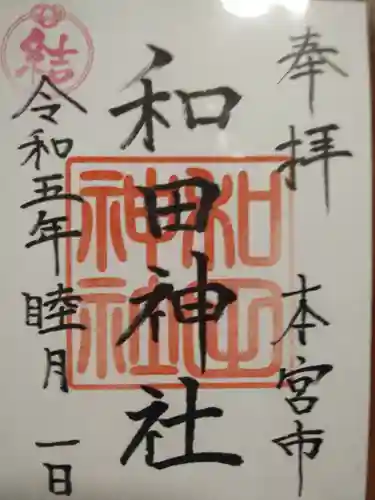 奉拝　本宮市
和田神社
和田神社
令和五年睦月一日
結